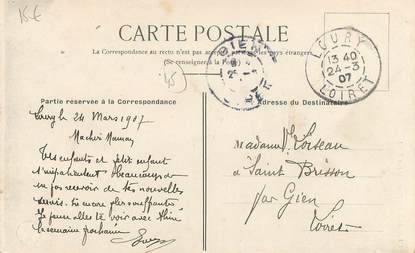 15 €
CARTE POSTALE
La Correspondance au recto n'est pas acceptée par tous les pays étrangers
(Se renseigner à la Poste)
GIEN
LOURY
13 40
24-3
07
LOIRET
45
Partie réservée à la Correspondance
Adresse du Destinataire
Loury le 24 Mars 1907
Ma chère Maman
Tes enfants et petit enfant
s'impatientent beaucoup de
ne pas recevoir de tes nouvelles
encore plus souffrante
le semaine prochaine
Madame Vve Loiseau
à Saint Brisson
par Gien
Loiret